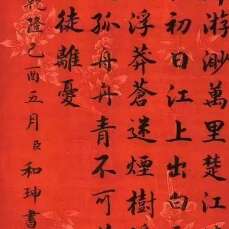 游渺萬里楚江
初日江上出白
浮莽蒼迷煙樹
孤舟丹青不可
徒離憂
乾隆己酉五月臣和珅書